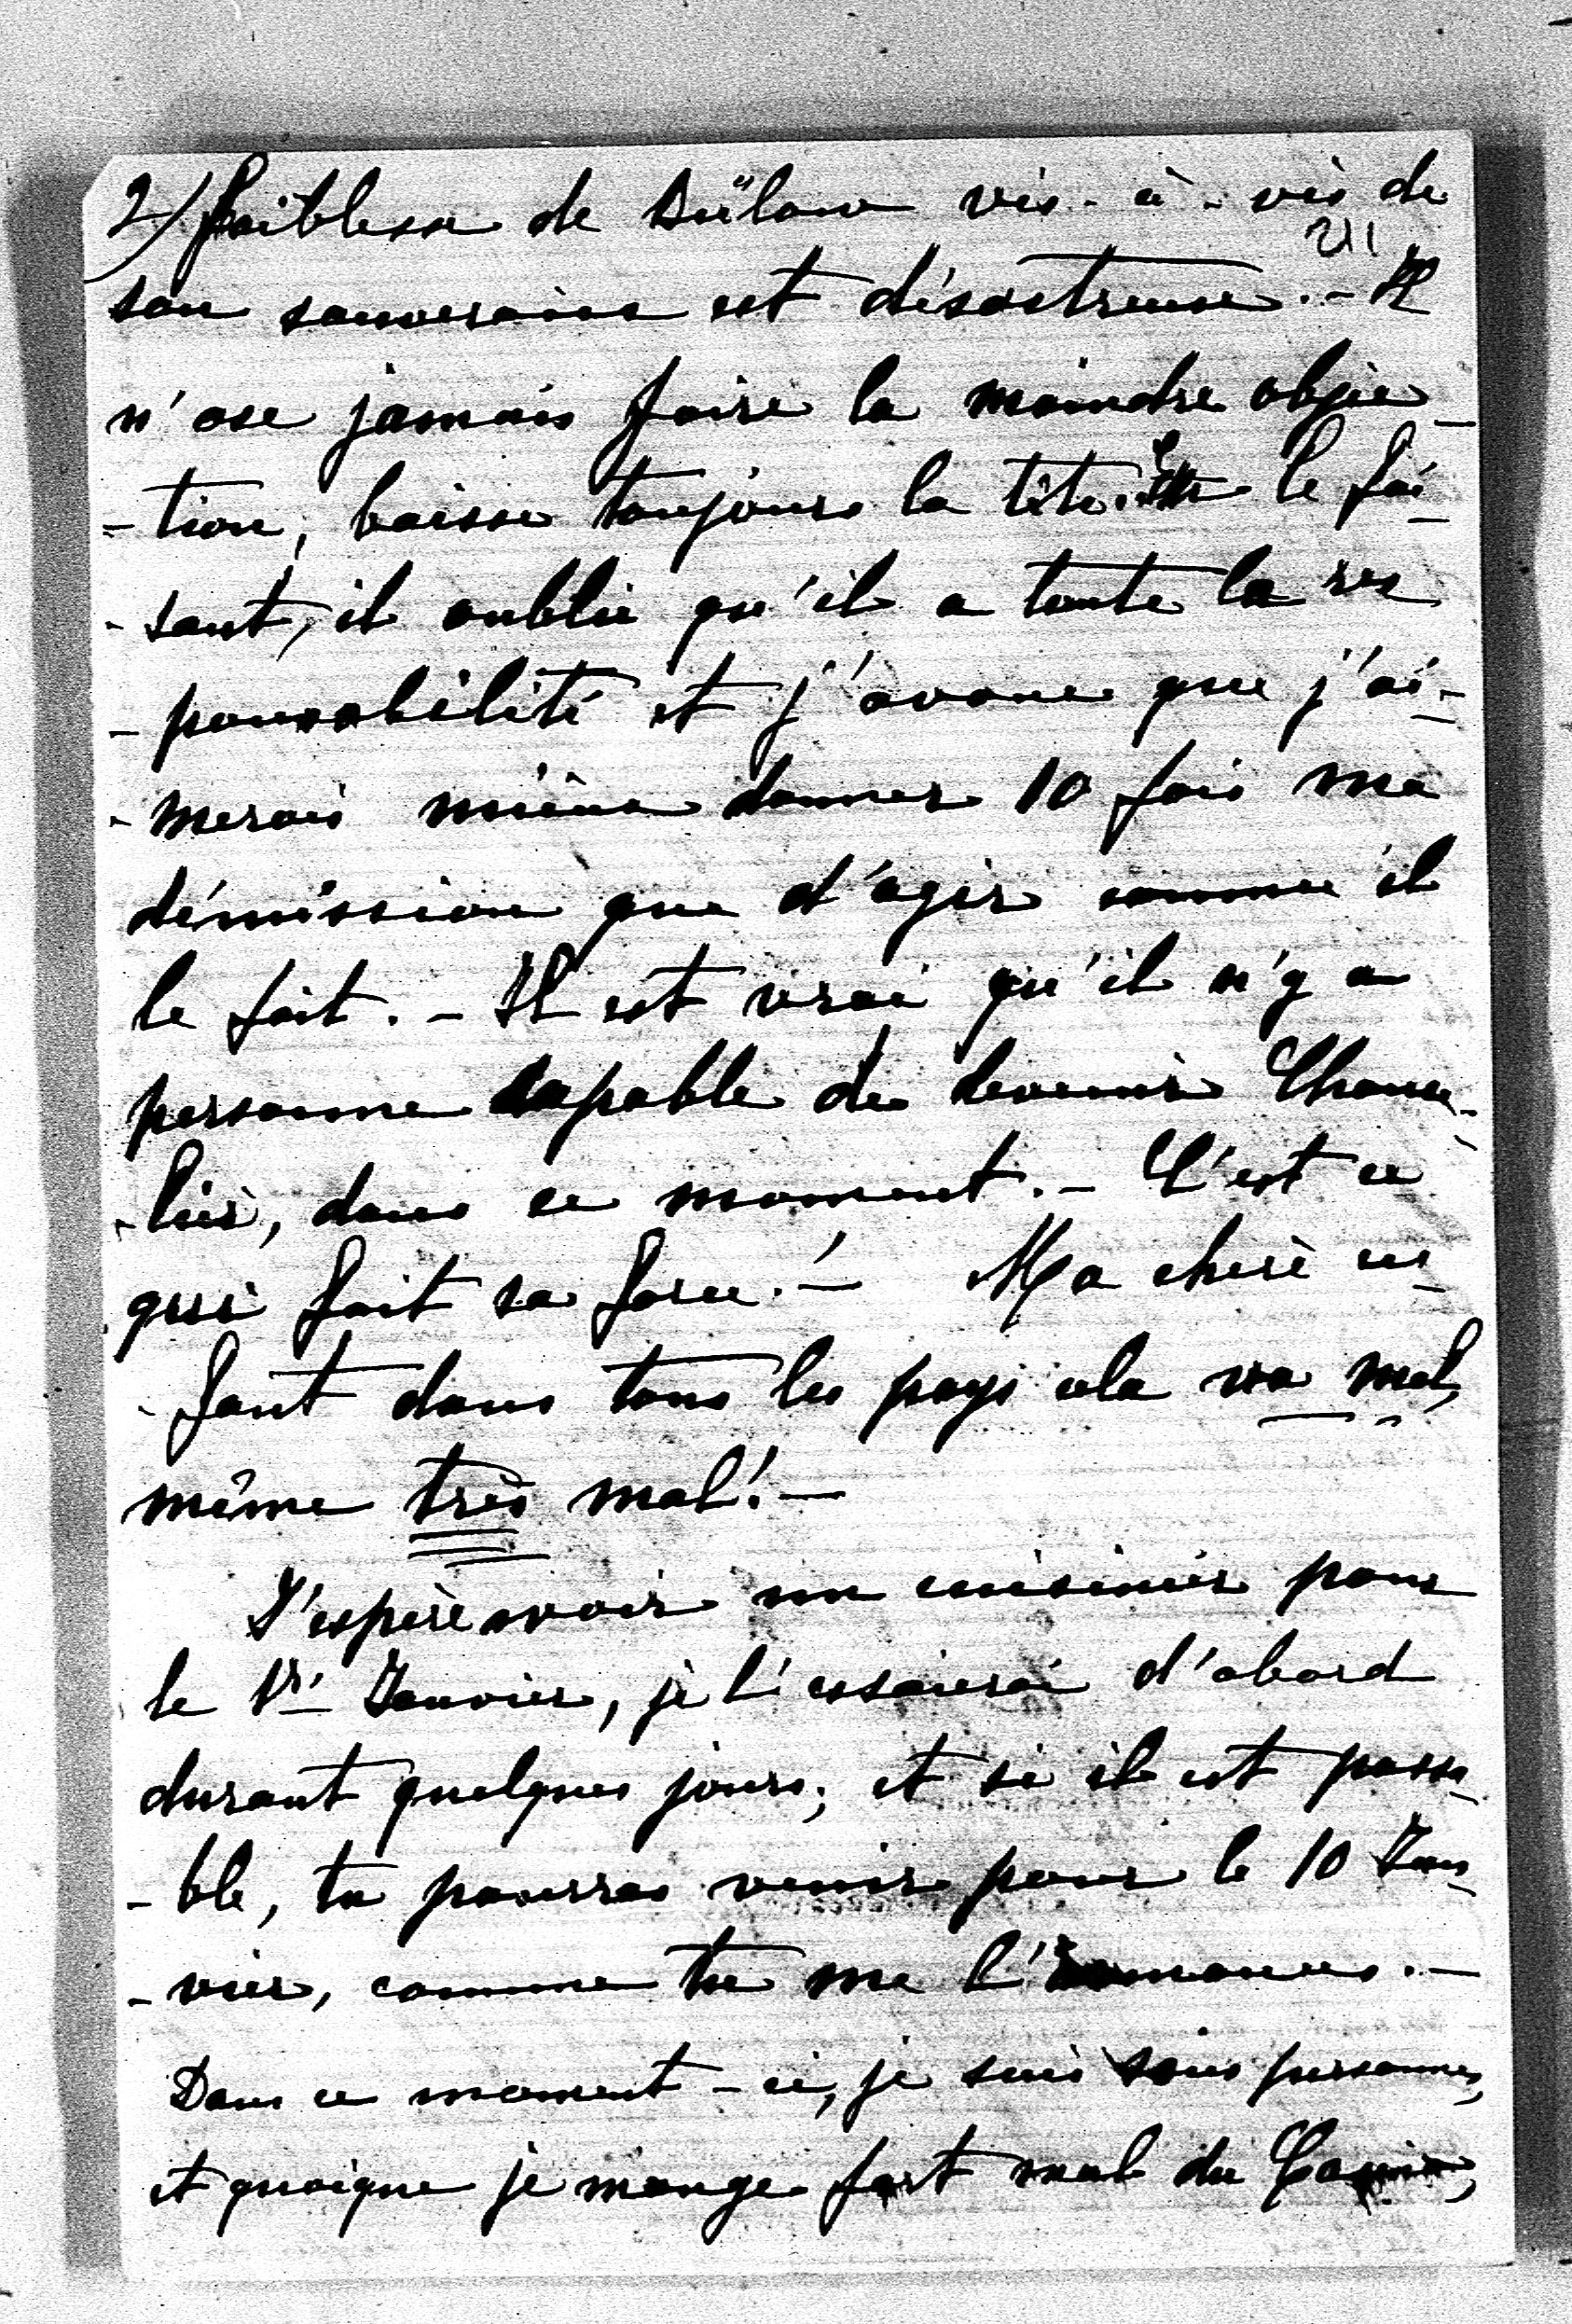 2/ faiblesse de Bülow vis-à-vis de
211
son souverain est désastreuse. - Il
n'ose jamais faire la moindre objec-
-tion, baisse toujours la tête. En le fai-
-sant, il oublie qu'il a toute la res
-ponsabilité et j'avoue que j'ai-
-merais mieux donner 10 fois ma
démission que d'agir comme il
le fait. - Il est vrai qu'il n'y a
personne capable de devenir Chance-
-lier, dans ce moment. - C'est ce
qui fait sa force! - Ma chère en-
-fant dans tous les pays cela va mal,
même très mal! -
J'espère avoir un cuisinier pour
le 1r Janvier, je l'essaierai d'abord
durant quelques jours; et si il est passa-
-ble, tu pourras venir pour le 10 Jan-
-vier, comme tu me l'annonces. -
Dans ce moment-ci, je suis sans personne,
et quoique je mange fort mal du Casino,